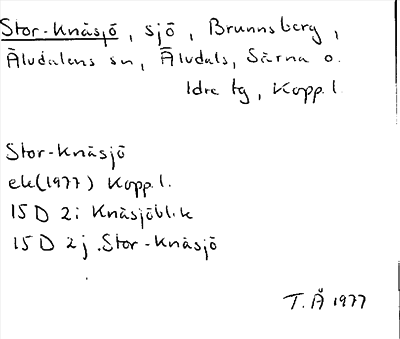 Stor-Knäsjö, sjö, Brunnsberg,
Älvdalens sn, Älvdals, Särna o.
Idre tg, Kopp.l.
Stor-Knäsjö
ek(1977) Kopp.l.
15 D 2i Knäsjöblik
15 D 2j Stor-Knäsjö
T.Å 1977